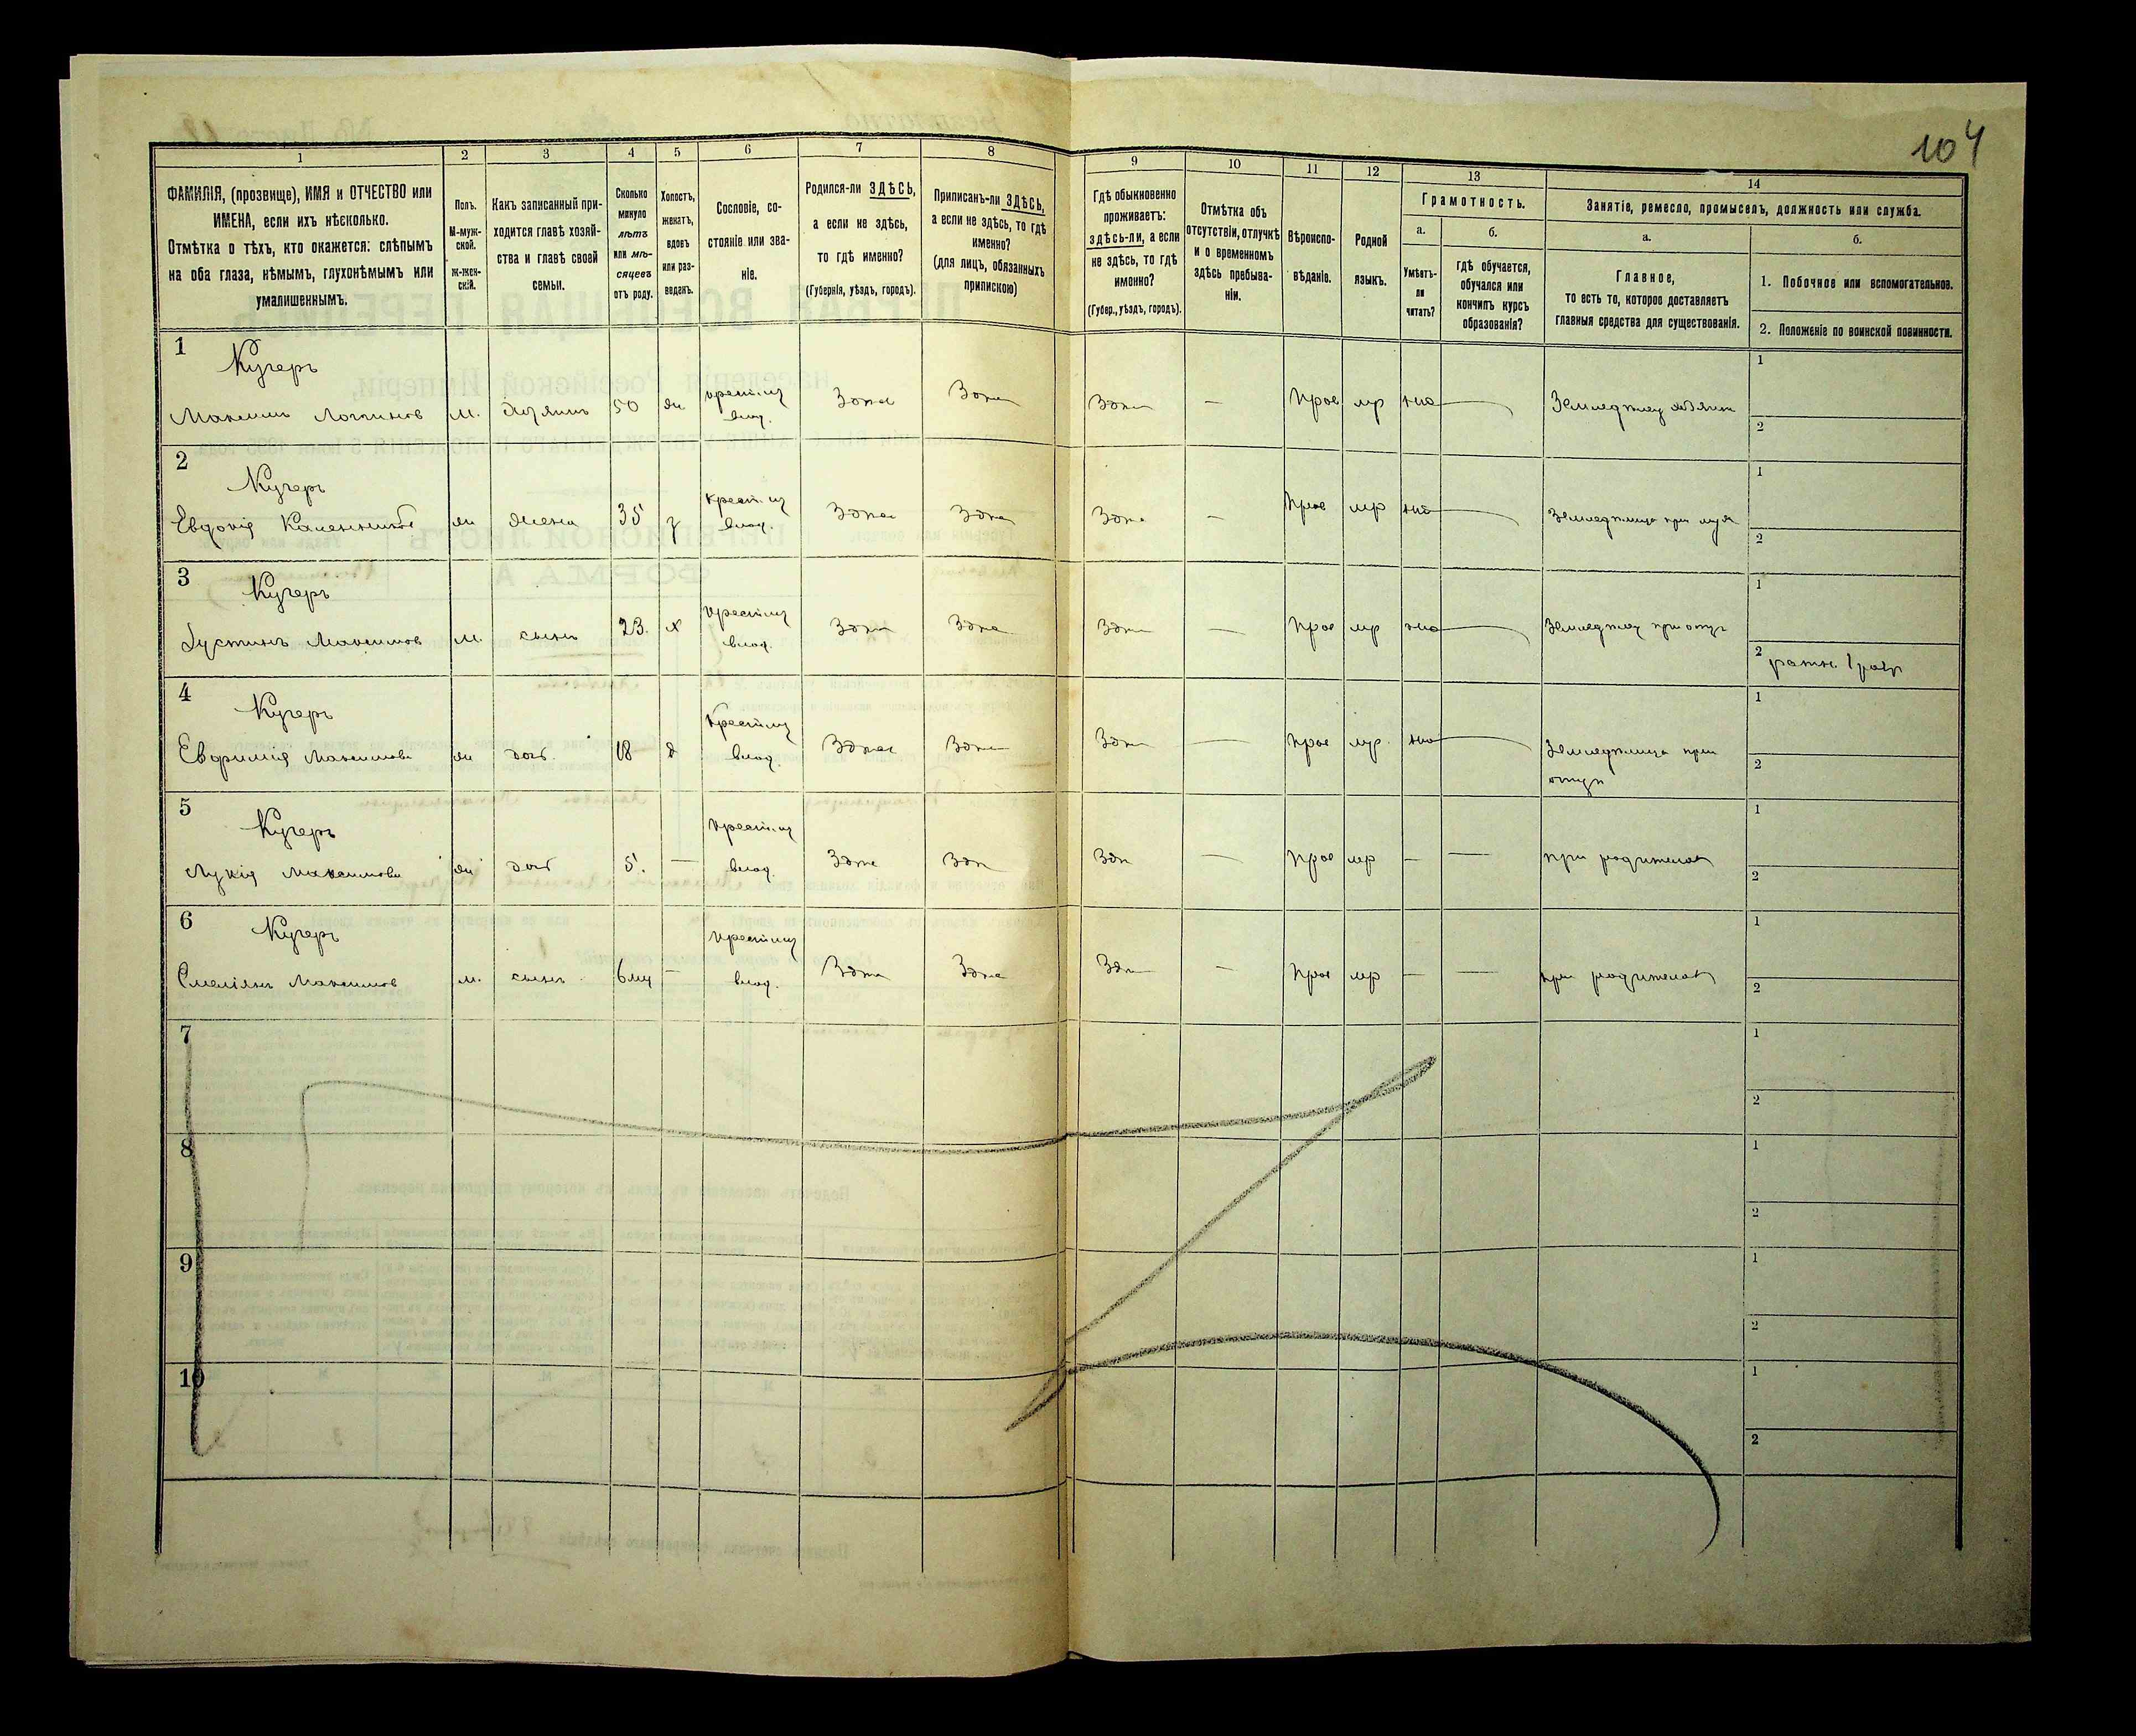 104
1 2 3 4 5 6 7 8 9 10 11 12 13 14
ФАМИЛІЯ, (прозвище), ИМЯ и ОТЧЕСТВО или
ИМЕНА, если ихъ нѣсколько.
Отмѣтка о тѣхъ, кто окажется: слѣпымъ
на оба глаза, нѣмымъ, глухонѣмымъ или
умалишеннымъ.
Полъ.
М-муж-
ской.
ж-жен-
скій.
Какъ записанный при-
ходится главѣ хозяй-
ства и главѣ своей
семьи.
Сколько
минуло
лѣтъ
или мѣ-
сяцевъ
отъ роду.
Холостъ,
женатъ,
вдовъ
или раз-
веденъ.
Сословіе, со-
стояніе или зва-
ніе.
Родился-ли ЗДѢСЬ,
а если не здѣсь,
то гдѣ именно?
(Губернія, уѣздъ, городъ).
Приписанъ-ли ЗДѢСЬ,
а если не здѣсь, то гдѣ
именно?
(для лицъ, обязанныхъ
припискою)
Гдѣ обыкновенно
проживаетъ:
здѣсь-ли, а если
не здѣсь, то гдѣ
именно?
(Губер., уѣздъ, городъ).
Отмѣтка объ
отсутствіи, отлучкѣ
и о временномъ
здѣсь пребыва-
ніи.
Вѣроиспо-
вѣданіе.
Родной
языкъ.
Грамотность.
а.
Умѣетъ-
ли
читать?
б.
гдѣ обучается,
обучался или
кончилъ курсъ
образованія?
Занятіе, ремесло, промыселъ, должность или служба.
а.
Главное,
то есть то, которое доставляетъ
главныя средства для существованія.
б.
1. Побочное или вспомогательное.
2. Положеніе по воинской повинности.
1 Кугеръ
Максимъ Логвиновъ м. хозяинъ 50 ж крест. из влад. Здѣсь Здѣсь Здѣсь — Прав мр нѣ Земледѣлец хозяин
1
2
2 Кугеръ
Евдокія ж жена 35 з крест. из влад. Здѣсь Здѣсь Здѣсь — Прав мр нѣ Земледѣлица при муж
1
2
3 Кугеръ
Іустинъ Максимов м. сынъ 23. х крест. из влад. Здѣсь Здѣсь Здѣсь — Прав мр нѣ Земледѣлец при отцѣ
1
2 ратн. 1 разр
4 Кугеръ
Евфимія Максимова ж дочь 18 д крест. из влад. Здѣсь Здѣсь Здѣсь — Прав мр. нѣ Земледѣлица при
отцѣ
1
2
5 Кугеръ
Лукія Максимова ж дочь 5. — крест. из влад. Здѣсь Здѣсь Здѣсь — Прав мр — — при родителях
1
2
6 Кугеръ
Емеліянъ Максимов м. сынъ 6 мц — крест. из влад. Здѣсь Здѣсь Здѣсь — Прав мр — — при родителях
1
2
7
1
2
8
1
2
9
1
2
10
1
2